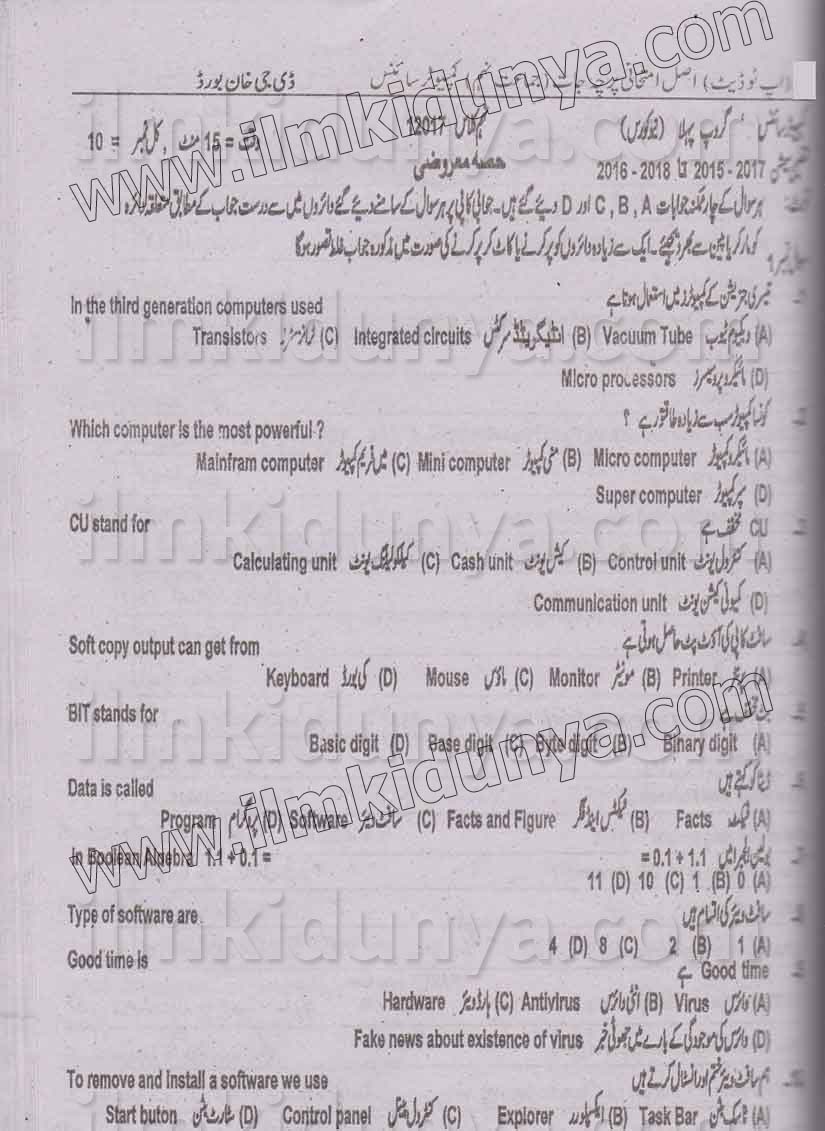 (اپ ٹو ڈیٹ) اصل امتحانی پرچہ جات (جماعت نہم) کمپیوٹر سائنس ڈی جی خان بورڈ
گروپ پہلا (نیو کورس) 12017 وقت = 15 منٹ , کل نمبر = 10
2015 - 2017 تا 2016 - 2018 حصہ معروضی
ہر سوال کے چار ممکنہ جوابات C , B , A اور D دیئے گئے ہیں۔ جوابی کاپی پر ہر سوال کے سامنے دیئے گئے دائروں میں سے درست جواب کے مطابق متعلقہ دائرہ
کو مارکر یا پین سے بھر دیجئے۔ ایک سے زیادہ دائروں کو پر کرنے یا کاٹ کر پر کرنے کی صورت میں مذکورہ جواب غلط تصور ہوگا
In the third generation computers used تیسری جنریشن کے کمپیوٹرز میں استعمال ہوتا ہے
(A) ویکیوم ٹیوب Vacuum Tube (B) انٹیگریٹڈ سرکٹس Integrated circuits (C) ٹرانزسٹرز Transistors
(D) مائیکرو پروسیسرز Micro processors
Which computer is the most powerful ? کونسا کمپیوٹر سب سے زیادہ طاقتور ہے ؟
(A) مائیکرو کمپیوٹر Micro computer (B) منی کمپیوٹر Mini computer (C) مین فریم کمپیوٹر Mainfram computer
(D) سپر کمپیوٹر Super computer
CU stand for CU مخفف ہے
(A) کنٹرول یونٹ Control unit (B) کیش یونٹ Cash unit (C) کیلکولیٹنگ یونٹ Calculating unit
(D) کمیونی کیشن یونٹ Communication unit
Soft copy output can get from سافٹ کاپی کی آؤٹ پٹ حاصل ہوتی ہے
(A) Printer (B) مونیٹر Monitor (C) ماؤس Mouse (D) کی بورڈ Keyboard
BIT stands for
(A) Binary digit (B) Byte digit (C) Base digit (D) Basic digit
Data is called ڈیٹا کو کہتے ہیں
(A) فیکٹ Facts (B) فیکٹس اینڈ فگر Facts and Figure (C) سافٹ ویئر Software (D) پروگرام Program
In Boolean Algebra 1.1 + 0.1 = بولین الجبرا میں 0.1 + 1.1 =
(A) 0 (B) 1 (C) 10 (D) 11
Type of software are سافٹ ویئر کی اقسام ہیں
(A) 1 (B) 2 (C) 8 (D) 4
Good time is Good time ہے
(A) وائرس Virus (B) انٹی وائرس Antivirus (C) ہارڈ ویئر Hardware
(D) وائرس کی موجودگی کے بارے میں جھوٹی خبر Fake news about existence of virus
To remove and install a software we use ہم سافٹ ویئر ختم اور انسٹال کرتے ہیں
(A) Task Bar (B) ایکسپلورر Explorer (C) کنٹرول پینل Control panel (D) سٹارٹ بٹن Start buton
www.ilmkidunya.com
www.ilmkidunya.com
ilmkidunya.com
ilmkidunya.com
ilmkidunya.com
ilmkidunya.com
ilmkidunya.com